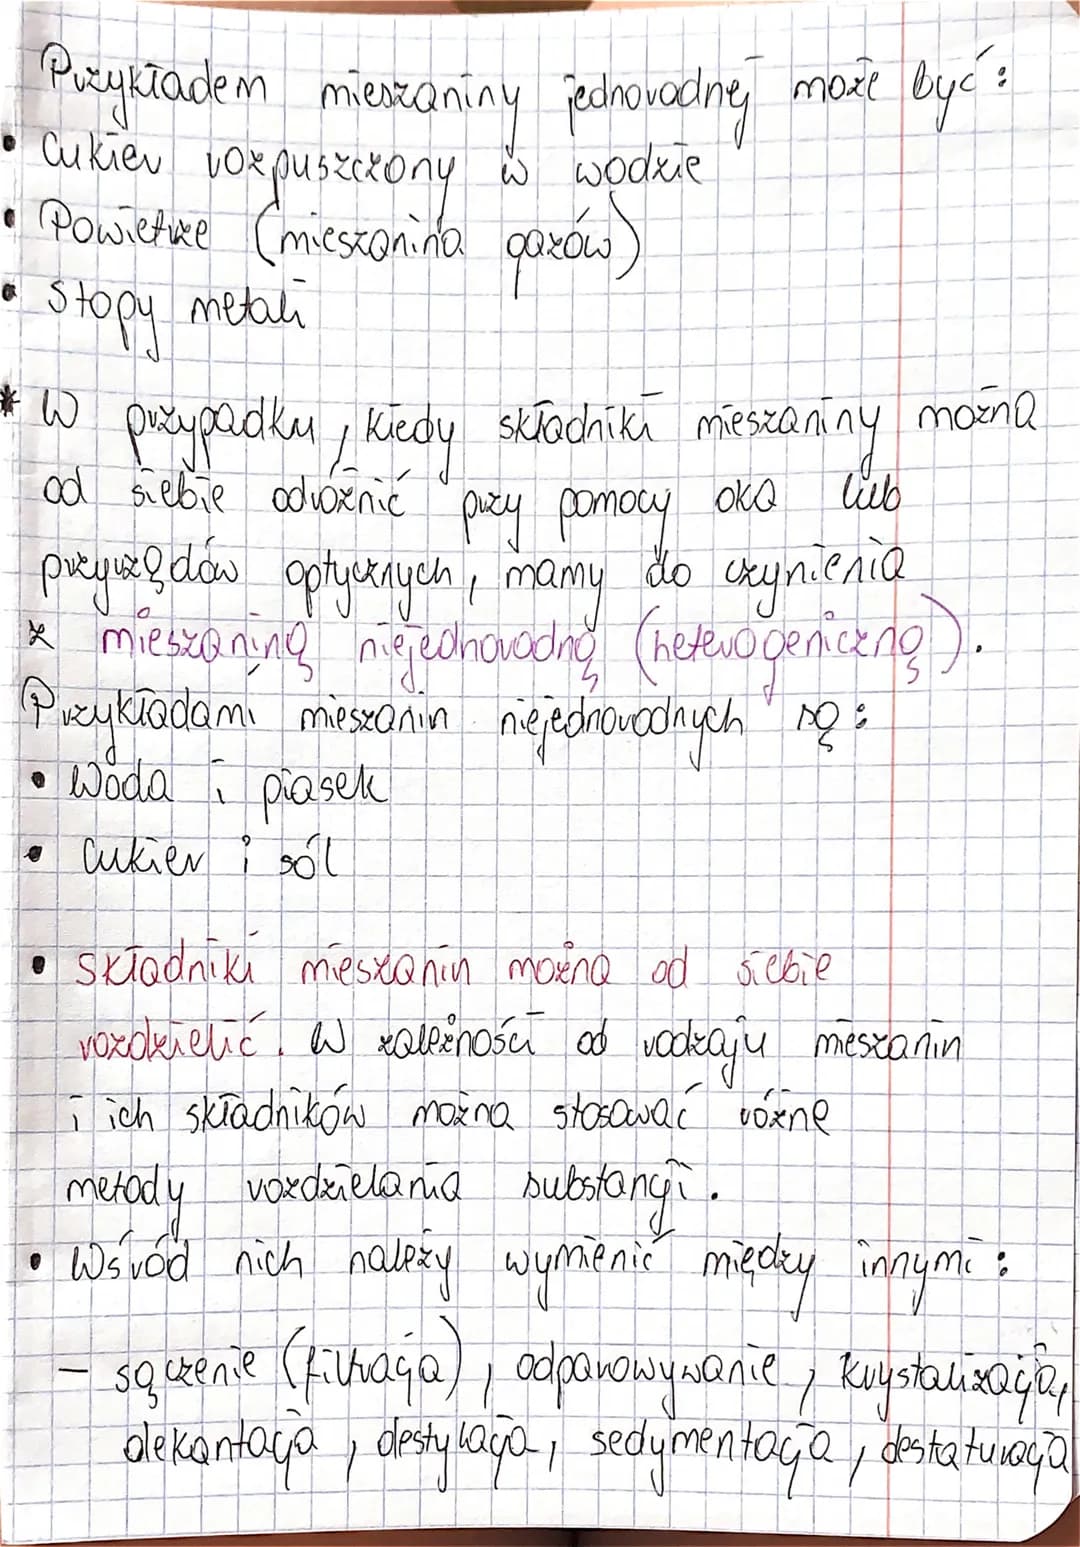 Przykładem mieszaniny jednorodnej może być:
• Cukier rozpuszczony w wodzie
• Powietrze (mieszanina gazów)
• Stopy metali
* W przypadku, kiedy składniki mieszaniny można
od siebie odróżnić przy pomocy oka lub
przyrządów optycznych, mamy do czynienia
z mieszaniną niejednorodną (heterogeniczną).
Przykładami mieszanin niejednorodnych są:
• Woda i piasek
• Cukier i sól
• Składniki mieszanin można od siebie
rozdzielić. W zależności od rodzaju mieszanin
i ich składników można stosować różne
metody rozdzielania substancji.
• Wśród nich należy wymienić między innymi:
– sączenie (filtracja), odparowywanie, krystalizacja,
dekantacja, destylacja, sedymentacja, destaturacja